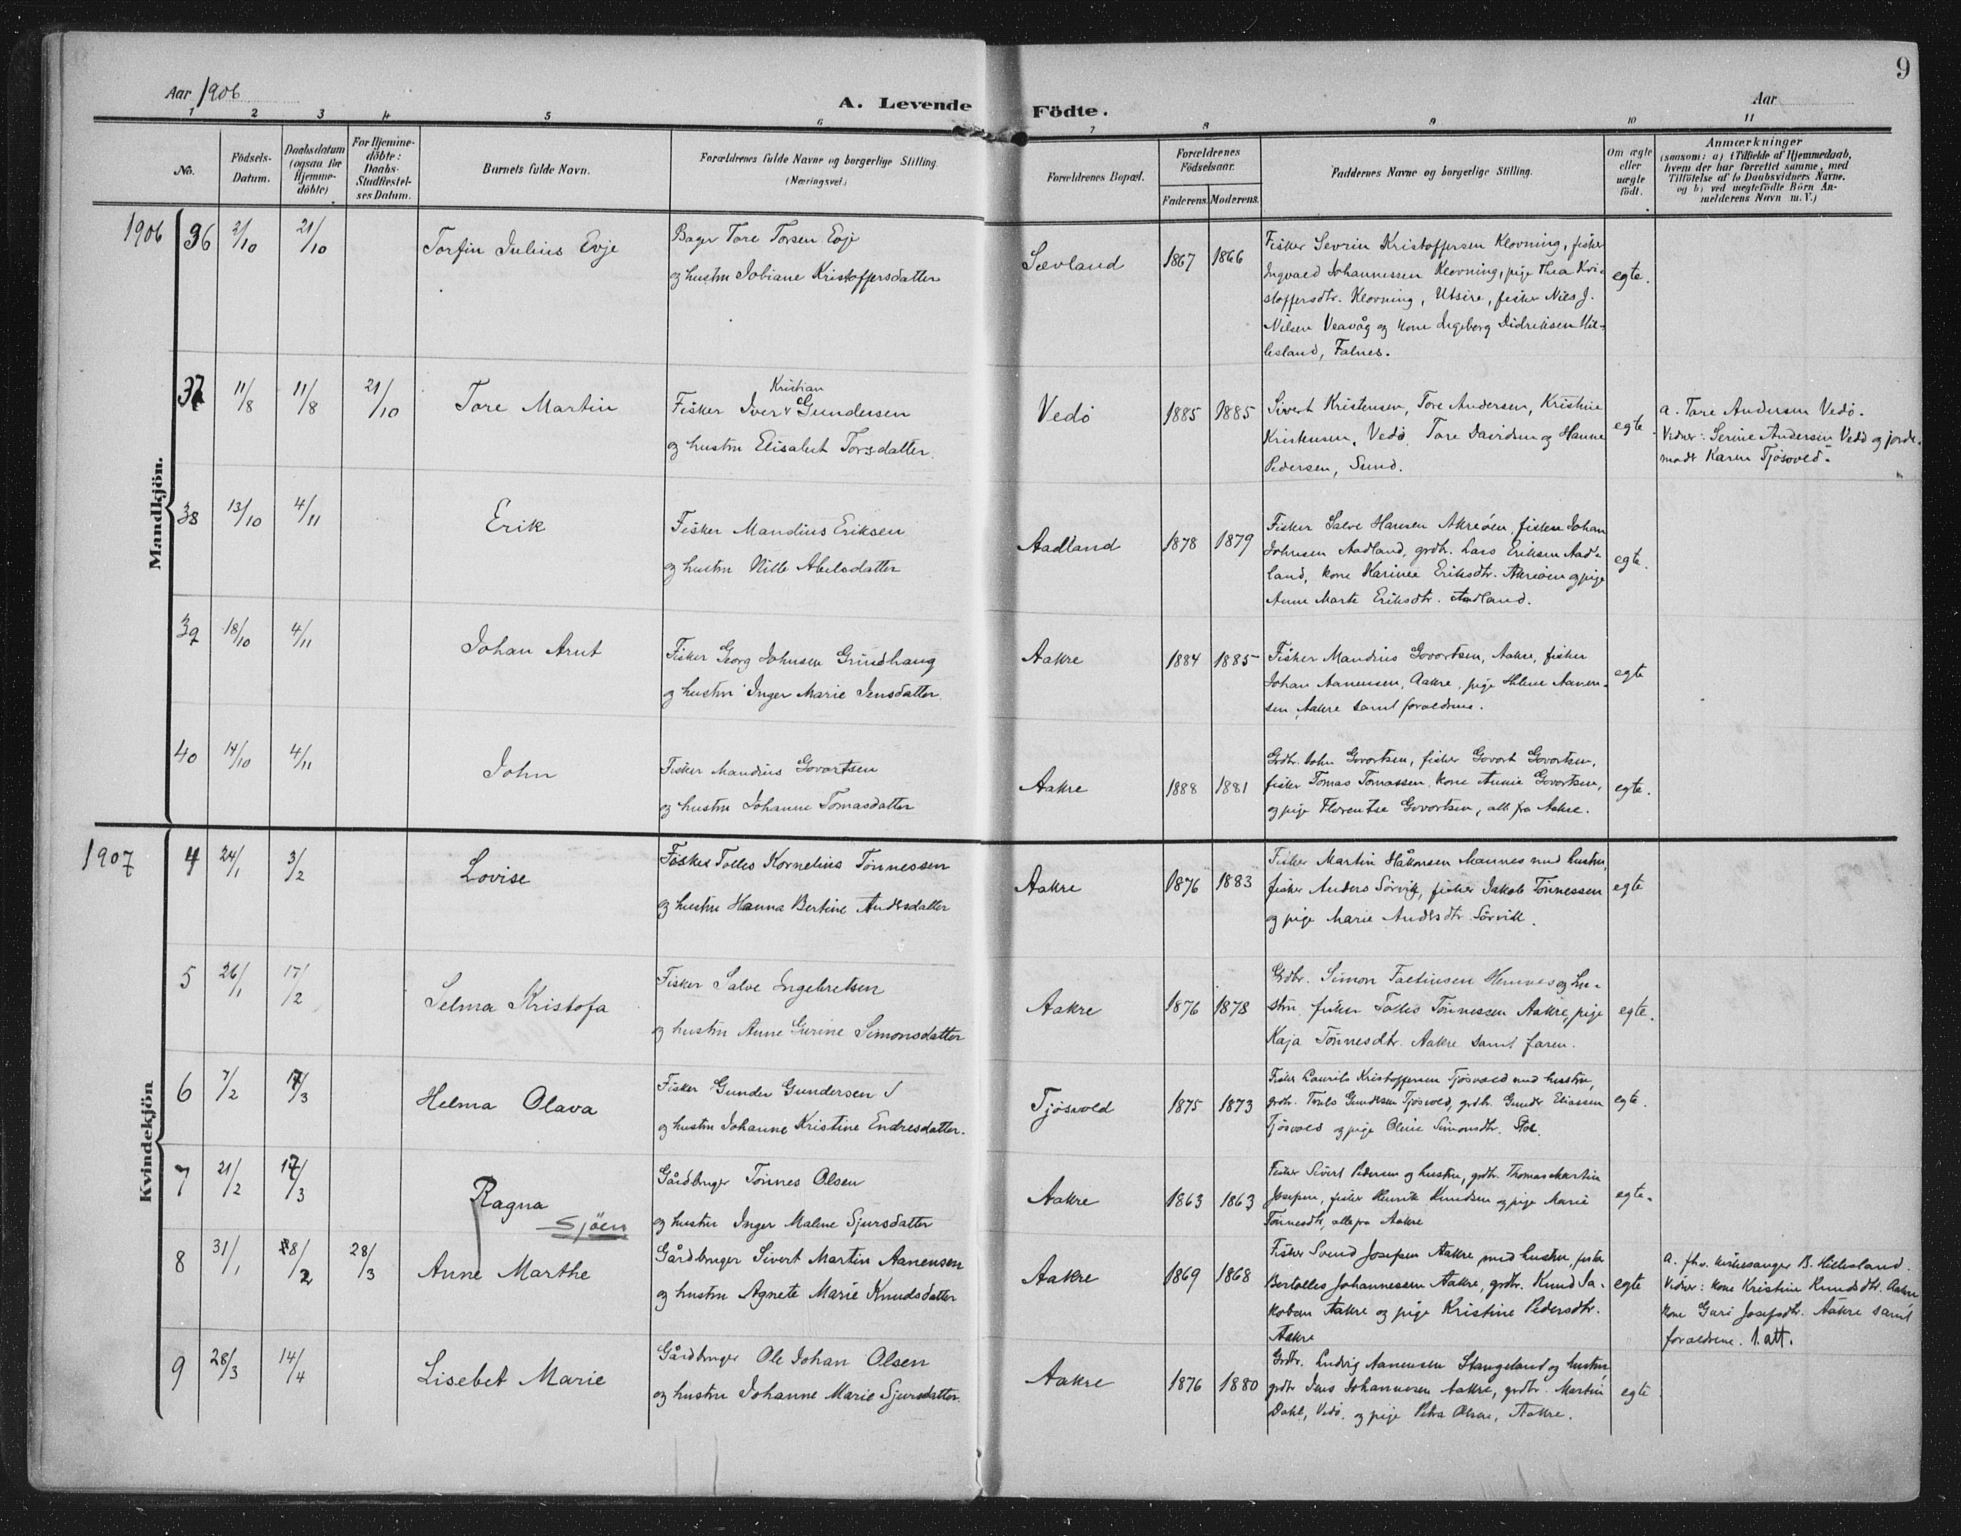 9
Aar 1906
A. Levende Födte.
Aar
1 2 3 4 5 6 7 8 9 10 11
No.
Födsels-
Datum.
Daabsdatum
(ogsaa for
Hjemme-
döbte)
For Hjemme-
döbte:
Daabs-
Stadfæstel-
ses Datum.
Barnets fulde Navn.
Forældrenes fulde Navne og borgerlige Stilling.
(Næringsvei.)
Forældrenes Bopæl.
Forældrenes
Födselsaar.
Faderens. Moderens.
Faddernes Navne og borgerlige Stilling.
Om ægte
eller
uægte
født.
Anmærkninger
(saasom: a) i Tilfælde af Hjemmedaab,
hvem der har forrettet samme, med
Tilföielse af to Daabsvidners Navne,
og b) ved uægtefödte Börn An-
melderens Navn m. V.)
Mandkjön.
1906 36 2/10 21/10 Torfin Julius Evje
Bager Tore Torsen Evje
og hustru Jobiane Kristoffersdatter
Sævland 1867 1866
Fisker Sevrin Kristoffersen Klovning, fisker
Ingvald Johannessen Klovning, pige Thea Kri-
stoffersdtr. Klovning, Utsire, fisker Nils J.
Nilsen Veavåg og kone Ingeborg Didriksen Hil-
lesland, Falnes.
egte.
37 11/8 11/8 21/10 Tore Martin
Kristian
Fisker Iver Gundersen
og hustru Elisabet Torsdatter.
Vedö 1885 1885
Sivert Kristensen, Tore Andersen, Kristine
Kristensen, Vedö, Tore Davidsen og Hanne
Pedersen, Sund.
egte.
a. Tore Andersen Vedö.
Vidner: Serine Andersen Vedö og jorde-
moder Karen Tjösvold.
38 13/10 4/11 Erik
Fisker Mandius Eriksen
og hustru Nille Abelsdatter
Aadland 1878 1879
Fisker Salve Hansen Akreöen, fisker Johan
Johnsen Aadland, grdbr. Lars Eriksen Aad-
land, kone Harine Eriksdtr. Akreöen og pige
Anne Marte Eriksdtr. Aadland.
egte.
39 18/10 4/11 Johan Arnt
Fisker Georg Johnsen Grindhaug
og hustru Inger Marie Jensdatter.
Aakre 1884 1885
Fisker Mandius Govortsen, Aakre, fisker
Johan Aanensen, Aakre, pige Helene Aanen-
sen, Aakre samt forældrene.
egte
40 14/10 4/11 John
Fisker Mandius Govortsen
og hustru Johanne Tomasdatter
Aakre 1888 1881
Grdbr. John Govortsen, fisker Govort Govortsen,
fisker Tomas Tomassen, kone Anne Govortsen,
og pige Florentse Govortsen, alle fra Aakre.
egte.
Kvindekjön
1907 4 24/1 3/2 Lovise
Fisker Tolles Kornelius Tönnessen
og hustru Hanna Bertine Andersdatter
Aakre 1876 1883
Fisker Martin Håkonsen Mannes med hustru,
fisker Anders Sörvik, fisker Jakob Tönnessen
og pige Marie Andersdtr. Sörvik.
egte
5 26/1 17/2 Selma Kristofa
Fisker Salve Ingebretsen
og hustru Anne Gurine Simonsdatter
Aakre 1876 1878
Grdbr. Simon Faltinsen Hemnes og hu-
stru, fisker Tolles Tönnessen Aakre, pige
Kaja Tönnesdtr. Aakre samt faren.
egte.
6 7/2 17/3 Helma Olava
Fisker Gunder Gundersen
og hustru Johanne Kristine Endresdatter.
Tjösvold 1875 1873
Fisker Laurits Kristoffersen Tjösvold med hustru,
grdbr. Truls Gundersen Tjösvold, grdbr. Gunder Eliassen
Tjösvold og pige Oline Simonsdtr. Stol.
egte.
7 21/2 17/3 Ragna
Sjöen
Gårdbruger Tönnes Olsen
og hustru Inger Malene Sjursdatter
Aakre 1863 1863
Fisker Sivert Pedersen og hustru, grdbr. Thomas Martin
Josefsen, fisker Henrik Knudsen og pige Marie
Tönnesdtr, alle fra Aakre
egte.
8 31/1 8/2 28/3 Anne Marthe
Gårdbruger Sivert Martin Aanensen
og hustru Agnete Marie Knudsdatter
Aakre 1869 1868
Fisker Svend Josefsen Aakre med hustru, fisker
Bertolles Johannessen Aakre, grdbr. Knud Ja-
kobsen Aakre og pige Kristine Pedersdtr.
Aakre
egte
a. fhv. kirkesanger B. Hillesland.
Vidner: kone Kristine Knudsdtr. Aakre
kone Guri Josefsdtr. Aakre samt
forældrene. 1 att.
9 28/3 14/4 Lisebet Marie
Gårdbruger Ole Johan Olsen
og hustru Johanne Marie Sjursdatter.
Aakre 1876 1880
Grdbr. Ludvig Aanensen Stangeland og hustru,
grdbr Jens Johannessen Aakre, grdbr. Martin
Dahl, Vedö, og pige Petra Olsen, Aakre.
egte